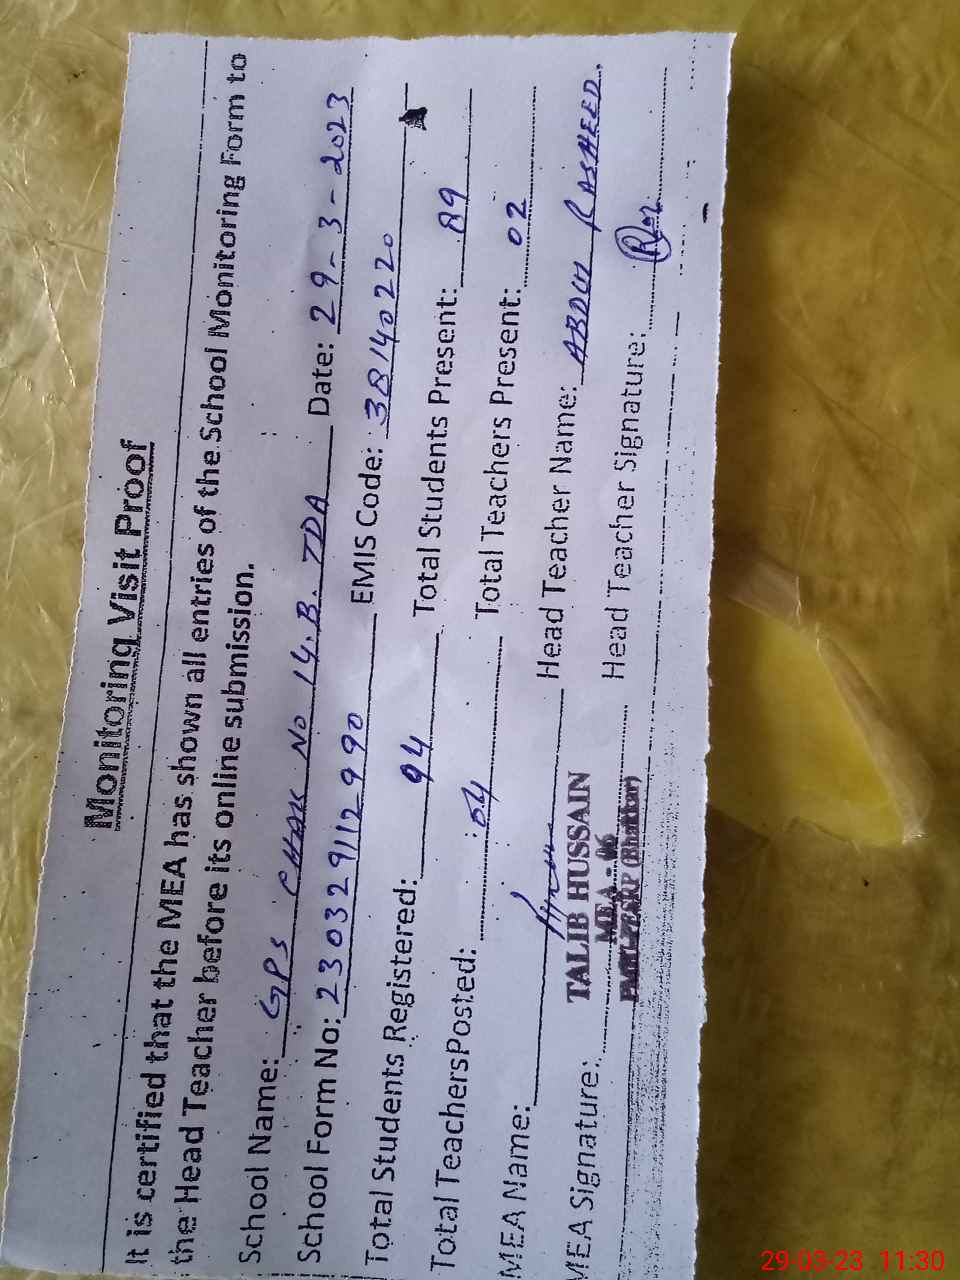 Monitoring Visit Proof
It is certified that the MEA has shown all entries of the School Monitoring Form to
the Head Teacher before its online submission.
School Name: GPS CHAK No 14.B. TDA Date: 29-3-2023
School Form No: 230329112990 EMIS Code: 38140220
Total Students Registered: 94 Total Students Present: 89
Total TeachersPosted: 04 Total Teachers Present: 02
MEA Name: Head Teacher Name: ABDUL RASHEED.
TALIB HUSSAIN
MEA - 06
(Bhakkar)
MEA Signature: Head Teacher Signature:
29-03-23 11:30